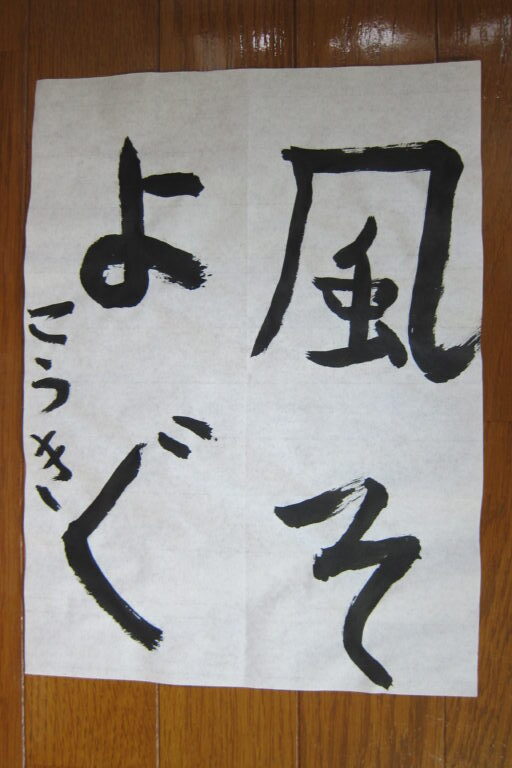 風そ
よぐ
こうき